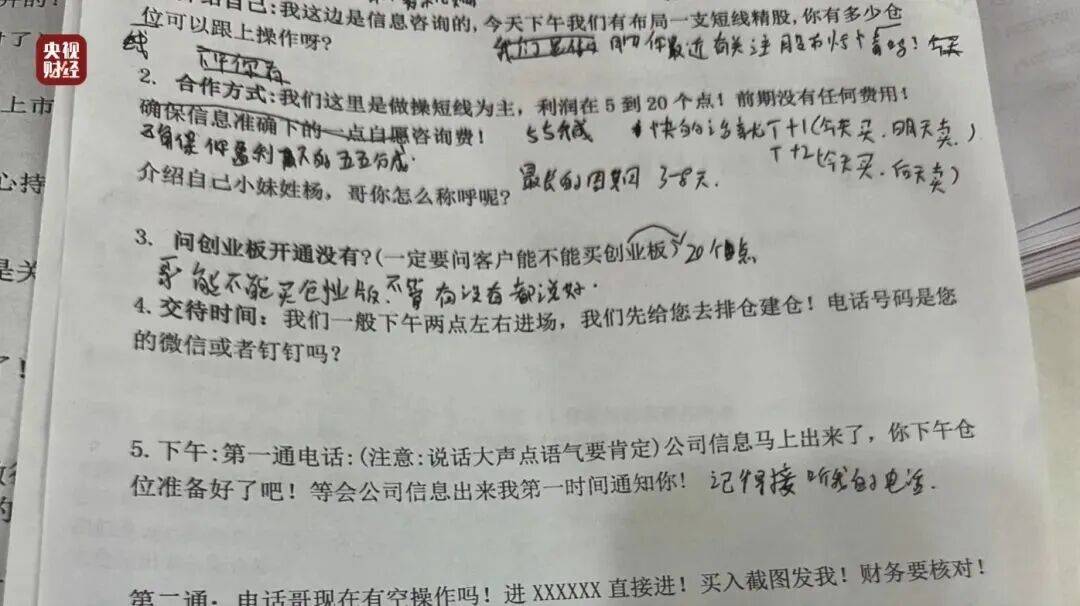 央视
财经
介绍自己:我这边是信息咨询的,今天下午我们有布局一支短线精股,你有多少仓
位可以跟上操作呀?
线
2. 合作方式:我们这里是做操短线为主,利润在5到20个点!前期没有任何费用!
确保信息准确下的一点自愿咨询费! 55分成 快的话就T+1(今天买.明天卖.)
确保你盈利 五五分成. T+2(今天买.后天卖)
介绍自己小妹姓杨,哥你怎么称呼呢? 最长的周期 3-8天.
3. 问创业板开通没有?(一定要问客户能不能买创业板) 20个点
能不能买创业版.不管有没有都说好.
4. 交待时间:我们一般下午两点左右进场,我们先给您去排仓建仓!电话号码是您
的微信或者钉钉吗?
5. 下午:第一通电话:(注意:说话大声点语气要肯定)公司信息马上出来了,你下午仓
位准备好了吧!等会公司信息出来我第一时间通知你! 记得接听我的电话.
第二通:电话哥现在有空操作吗!进XXXXXX直接进!买入截图发我!财务要核对!
上市
心持
是关
的